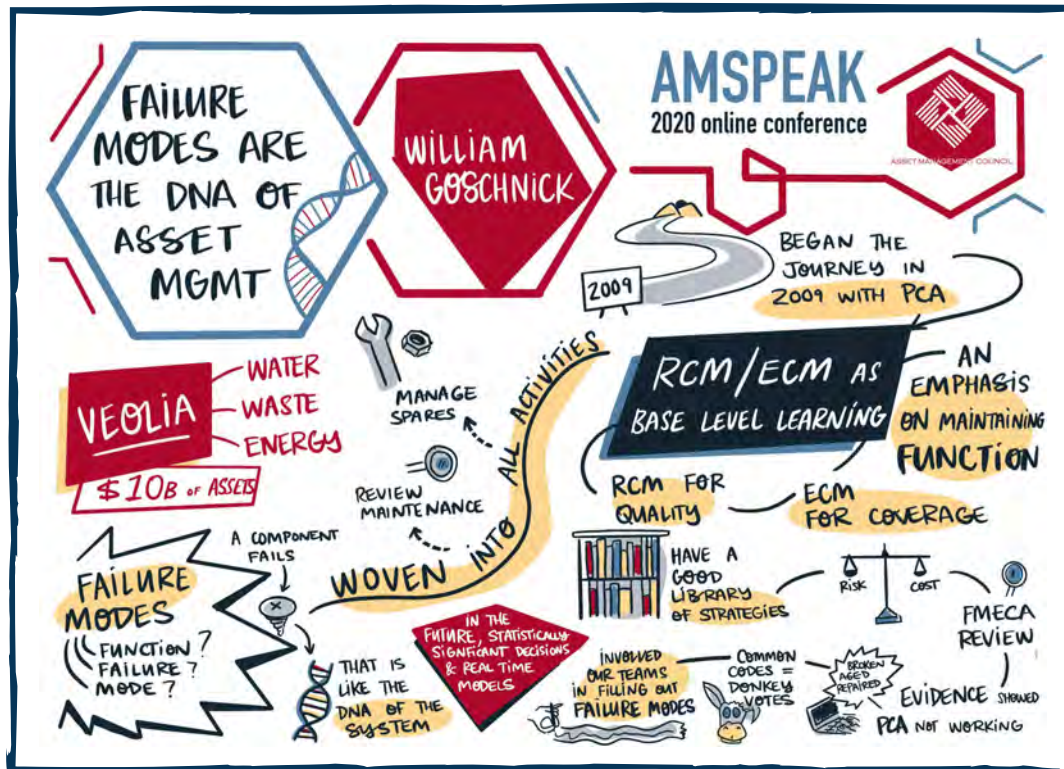 FAILURE
MODES ARE
THE DNA OF
ASSET
MGMT
WILLIAM
GOSCHNICK
AMSPEAK
2020 online conference
ASSET MANAGEMENT COUNCIL
2009
BEGAN THE
JOURNEY IN
2009 WITH PCA
VEOLIA
WATER
WASTE
ENERGY
$10B OF ASSETS
MANAGE
SPARES
REVIEW
MAINTENANCE
WOVEN INTO ALL ACTIVITIES
RCM/ECM AS
BASE LEVEL LEARNING
AN
EMPHASIS
ON MAINTAINING
FUNCTION
RCM FOR
QUALITY
ECM
FOR COVERAGE
FAILURE
MODES
FUNCTION?
FAILURE?
MODE?
A COMPONENT
FAILS
THAT IS
LIKE THE
DNA OF THE
SYSTEM
IN THE
FUTURE, STATISTICALLY
SIGNIFICANT DECISIONS
& REAL TIME
MODELS
HAVE A
GOOD
LIBRARY
OF STRATEGIES
RISK
COST
FMECA
REVIEW
INVOLVED
OUR TEAMS
IN FILLING OUT
FAILURE MODES
COMMON
CODES =
DONKEY
VOTES
BROKEN
AGED
REPAIRED
EVIDENCE SHOWED
PCA NOT WORKING